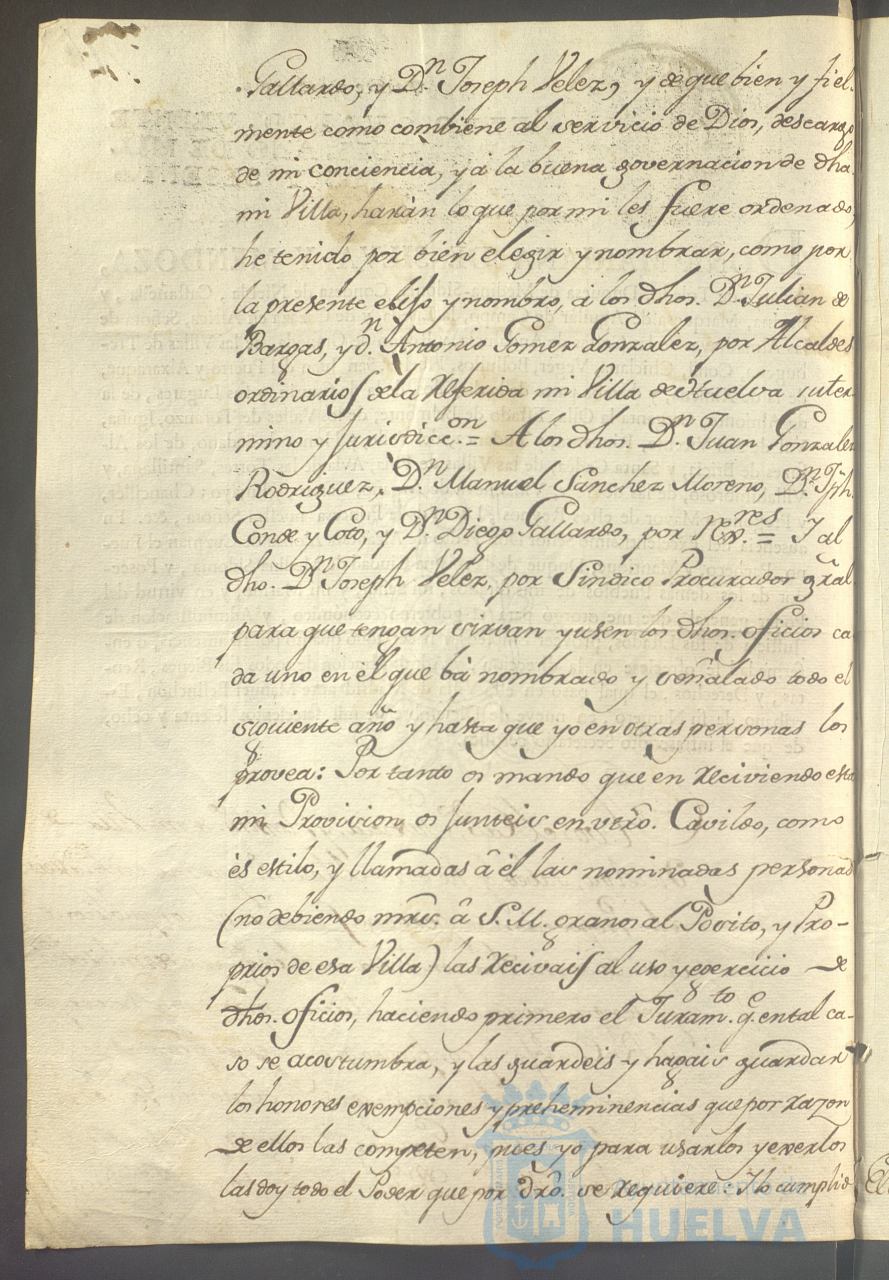 Gallardo, y Dn. Joseph Velez, y de que bien y fiel-
mente como combiene al servicio de Dios, descargo
de mi conciencia, y á la buena governacion de dha.
mi Villa, harán lo que por mi les fuere ordenado,
he tenido por bien elegir y nombrar, como por
la presente elijo y nombro, á los dhos. Dn. Julian de
Bargas, y dn. Antonio Gomez Gonzalez, por Alcaldes
ordinarios de la referida mi Villa de Huelva su ter-
mino y Jurisdiccon. = A los dhos. Dn. Juan Gonzalez
Rodriguez, Dn. Manuel Sanchez Moreno, Dn. Jph.
Conde y Coto, y Dn. Diego Gallardo, por Rexres. = I al
dho. Dn. Joseph Velez, por Sindico Procurador gral.
para que tengan sirvan y usen los dhos. oficios ca
da uno en él que bá nombrado y señalado todo el
siguiente año y hasta que yo en otras personas los
provea: Por tanto os mando que en reciviendo esta
mi Provision os junteis en vtro. Cavildo, como
és estilo, y llamadas â él las nominadas personas
(no debiendo mrs. â S.M. granos al Pósito, y Pro-
prios de esa Villa) las recivais al uso y egercicio de
dhos. oficios, haciendo primero el Juramto. q. en tal ca-
so se acostumbra, y las guardeis y hagais guardar
los honores exempciones y preheminencias que por razon
de ellos las competen, pues yo para usarlos y exerlos
las doy todo el Poder que por dro. se requiere: I lo cumplid
HUELVA